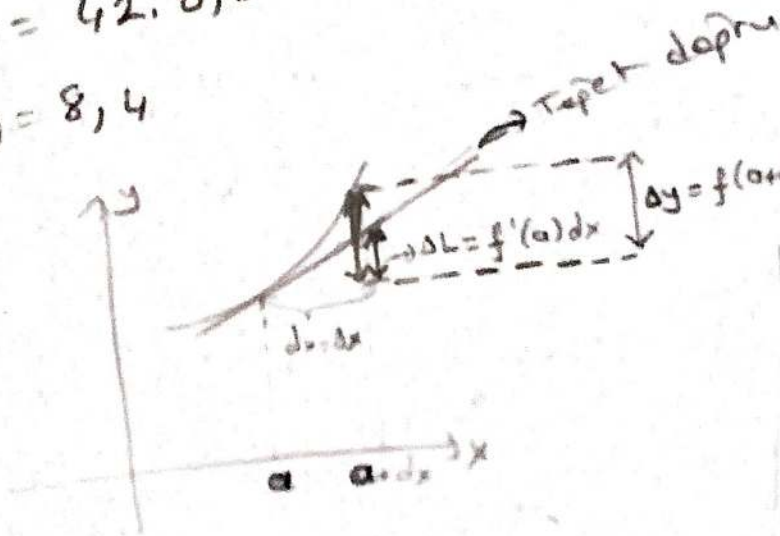 = 42. 0,
= 8, 4
Teğet doğru
y
Δy = f(a+
→ΔL = f'(a)dx
dx=Δx
x
a a+dx